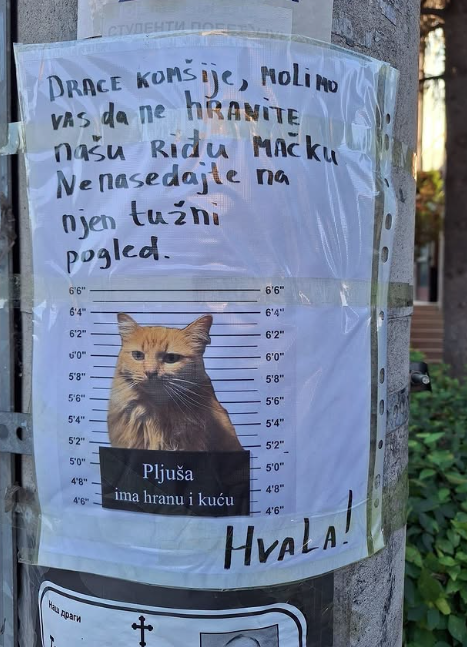 СТУДЕНТИ ПОБЕЂ
DRAGE KOMŠIJE, MOLIMO
VAS da ne hRANITE
našu RIĐU MAČKU
Ne nasedajte na
njen tužni
pogled.
6'6" 6'6"
6'4" 6'4"
6'2" 6'2"
6'0" 6'0"
5'8" 5'8"
5'6" 5'6"
5'4" 5'4"
5'2" 5'2"
5'0" 5'0"
4'8" 4'8"
4'6" 4'6"
Pljuša
ima hranu i kuću
HVALA!
Наш драги